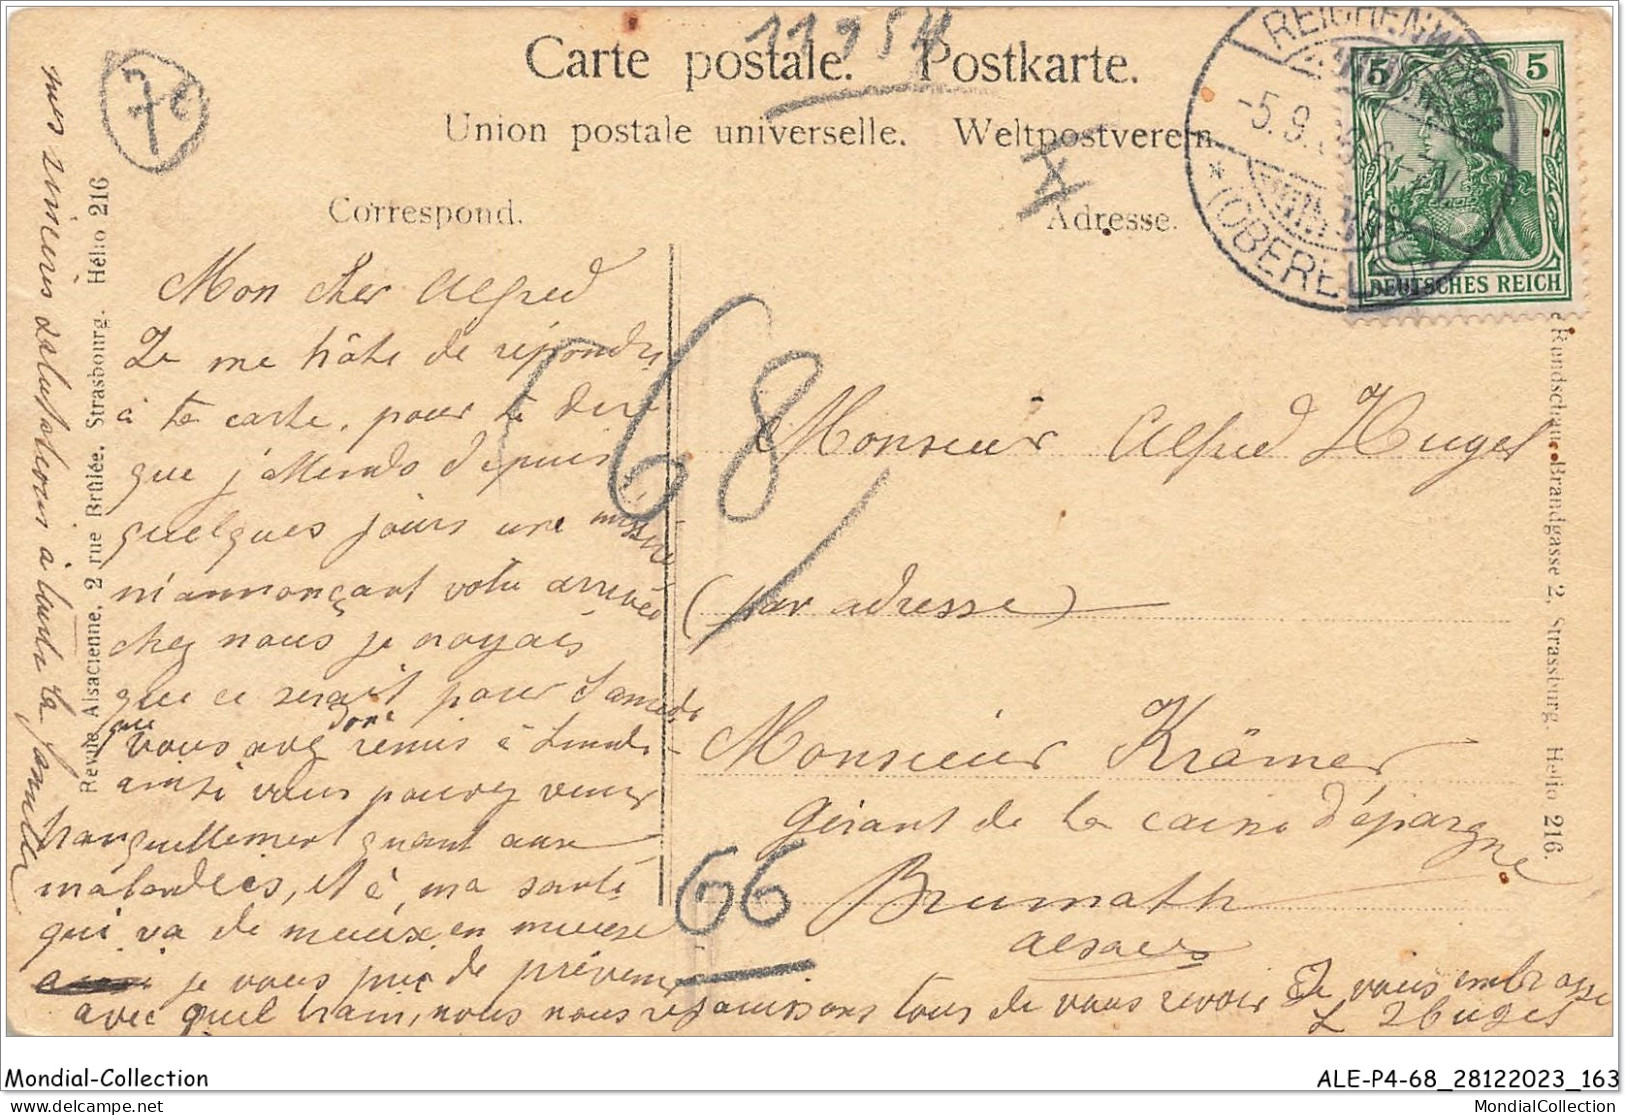 11954
Carte postale. Postkarte.
Union postale universelle. Weltpostverein.
Correspond. Adresse.
REICHENW
-5.9.
* (OBERELS
5 5
DEUTSCHES REICH
Mon cher Alfred
Je me hâte de répondre
à ta carte, pour te dire
que j'attends depuis
quelques jours une missive
m'annonçant votre arrivée
chez nous je croyais
que ce serait pour Samedi
que vous avez donc remis à Lundi
ainsi vous pouvez venir
tranquillement quant aux
maladies, et à ma santé
qui va de mieux en mieux
je vous prie de prévenir
avec quel train, nous nous réjouissons tous de vous revoir Je vous embrasse
Hugel
mes sincères salutations à toute la famille
Revue Alsacienne, 2 rue Brûlée, Strasbourg. Hélio 216
Rundschau Brandgasse 2, Strassburg. Helio 216.
68
66
Monsieur Alfred Hugel
(par adresse)
Monsieur Krämer
gérant de la caisse d'épargne
Brumath
Alsace
Mondial-Collection
ALE-P4-68_28122023_163
delcampe.net
MondialCollection